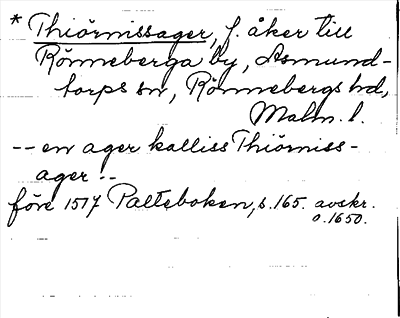 * Thiörnissager, f. åker till
Rönneberga by, Asmund-
torps sn, Rönnebergs hd,
Malm. l.
-- en ager kalliss Thiörniss-
ager --
före 1517 Palteboken, s. 165. avskr.
o. 1650.